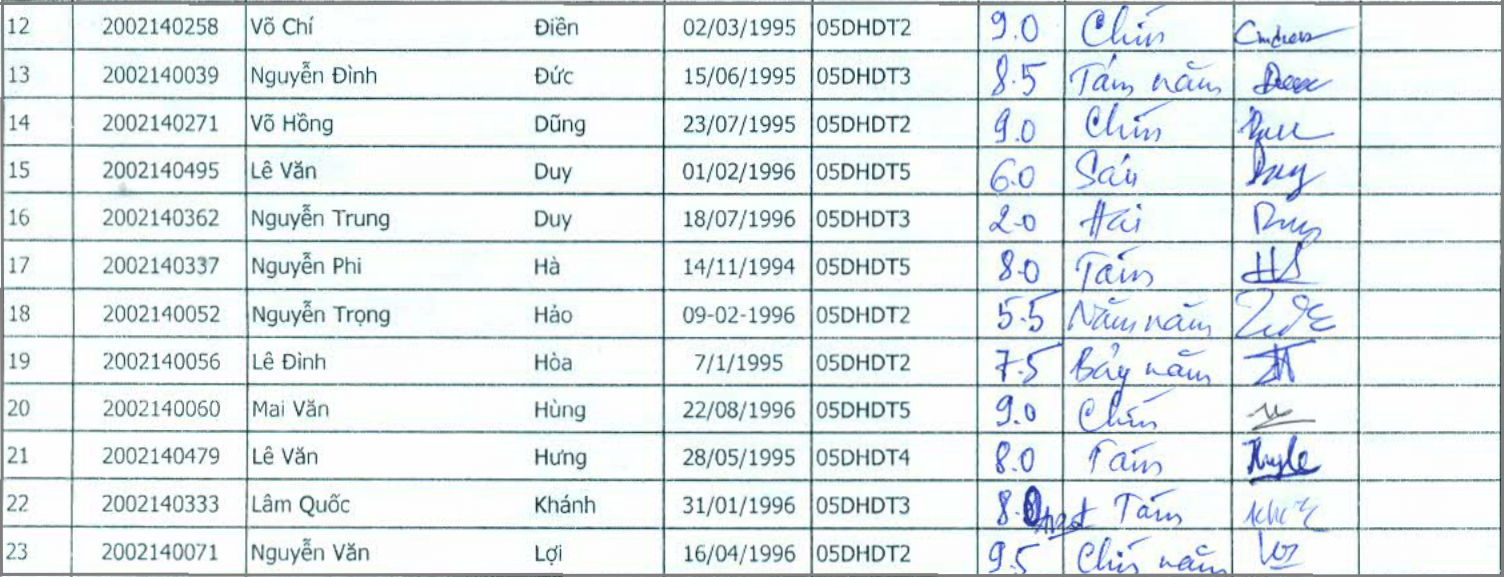 12 2002140258 Võ Chí Điền 02/03/1995 05DHDT2 9.0 Chín
13 2002140039 Nguyễn Đình Đức 15/06/1995 05DHDT3 8.5 Tám năm
14 2002140271 Võ Hồng Dũng 23/07/1995 05DHDT2 9.0 Chín
15 2002140495 Lê Văn Duy 01/02/1996 05DHDT5 6.0 Sáu Duy
16 2002140362 Nguyễn Trung Duy 18/07/1996 05DHDT3 2.0 Hai Duy
17 2002140337 Nguyễn Phi Hà 14/11/1994 05DHDT5 8.0 Tám
18 2002140052 Nguyễn Trọng Hảo 09-02-1996 05DHDT2 5.5 Năm năm
19 2002140056 Lê Đình Hòa 7/1/1995 05DHDT2 7.5 Bảy năm
20 2002140060 Mai Văn Hùng 22/08/1996 05DHDT5 9.0 Chín
21 2002140479 Lê Văn Hưng 28/05/1995 05DHDT4 8.0 Tám
22 2002140333 Lâm Quốc Khánh 31/01/1996 05DHDT3 8.0 Tám
23 2002140071 Nguyễn Văn Lợi 16/04/1996 05DHDT2 9.5 Chín năm